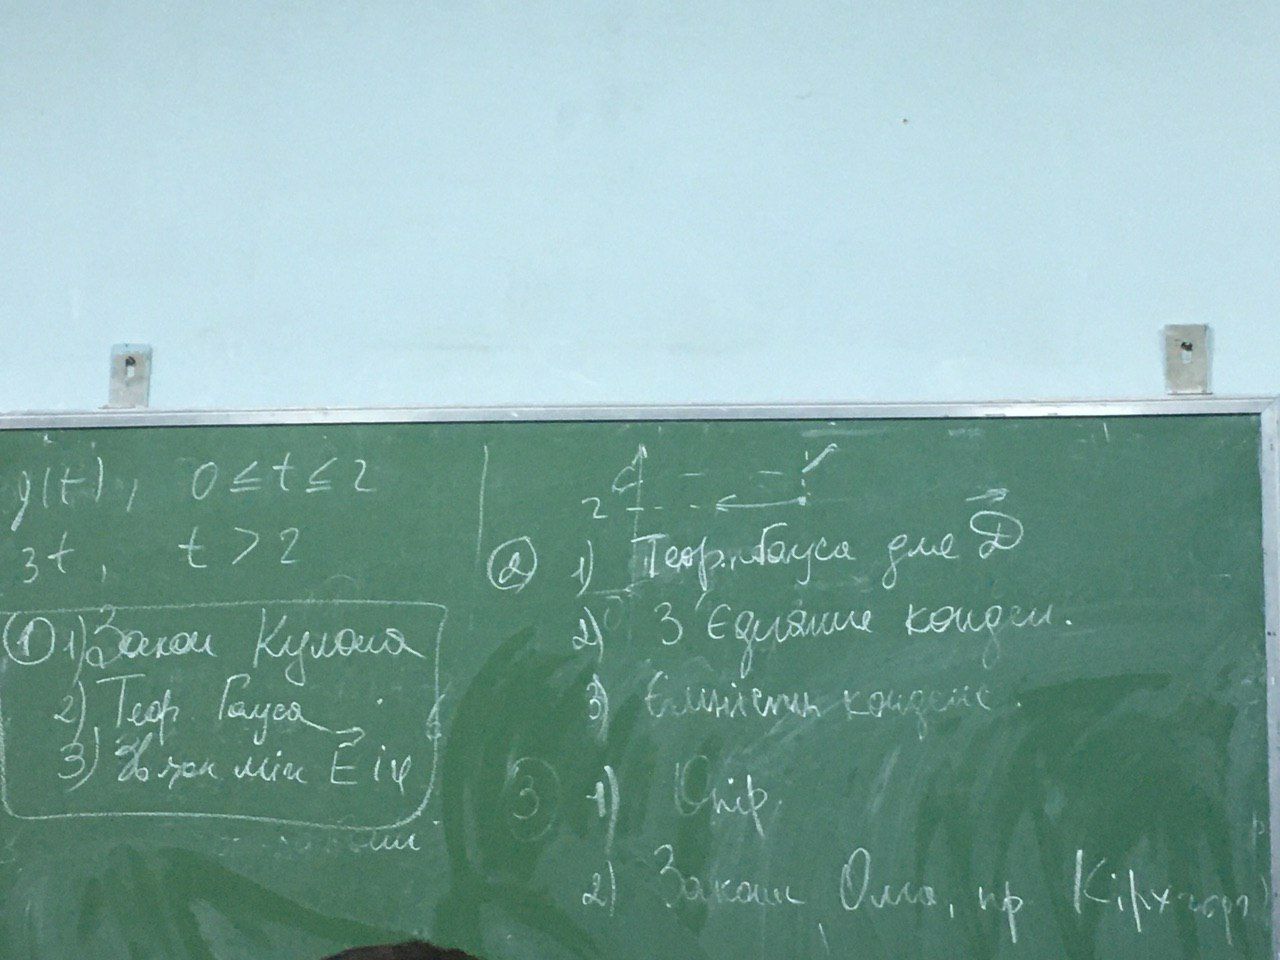 y(t), 0 ≤ t ≤ 2
3t, t > 2
① 1) Закон Кулона
2) Теор. Гауса
3) Зв'язок між E⃗ і φ
2
② 1) Теор. Гауса для D⃗
2) З'єднання конден.
3) Ємність конденс.
③ 1) Опір
2) Закони Ома, пр Кірхгофа